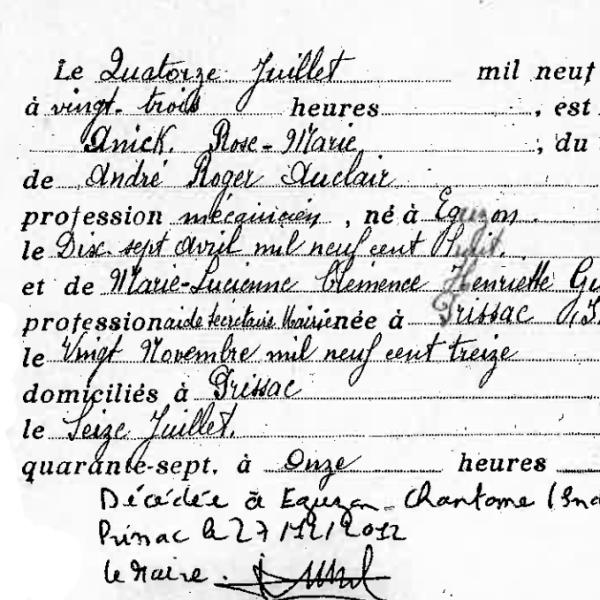 Le Quatorze Juillet mil neuf
à vingt-trois heures, est
Anick, Rose-Marie, du
de André Roger Auclair
profession mécanicien, né à Eguzon.
le Dix-sept avril mil neuf cent huit.
et de Marie-Lucienne Clémence Henriette
profession aide secrétaire Mairie née à Prissac
le Vingt Novembre mil neuf cent treize
domiciliés à Prissac
le Seize Juillet.
quarante-sept, à Onze heures
Décédée à Eguzon-Chantome (Ind
Prissac le 27/12/2012
le Maire.